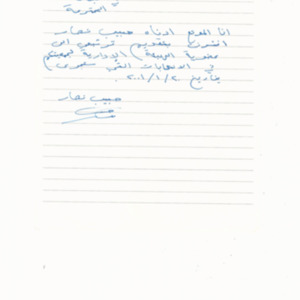 المحترمة
انا الموقع ادناه حبيب نصار
اتشرف بتقديم ترشيحي الى
عضوية الهيئة الادارية لجمعيتكم
في الانتخابات التي ستجرى
بتاريخ ٢٠٠١/١/٢
حبيب نصار